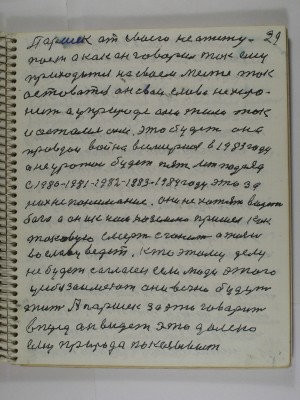 29
Паршек от своего не отступ-
поет а как он говорил ток ему
приходится на своем месте ток
остоватся он свои слова не хоро-
нит а у природе оно жило ток
и осталося оно. Это будет она
правдой война всемирная в 1983 году
а неурожаи будет пять лет подряд
С 1980-1981-1982-1983-1984 году это за
нахне понимание. они не хотят видет
бога а он и с нам на землю пришел как
токовую смерт сгонит а жизн
во славу ведет. Кто этому делу
не будет согласен сем люди этого
цели займают они вечно будут
жит А паршек за это говорит
вперед он видет это далеко
ему природа показывает